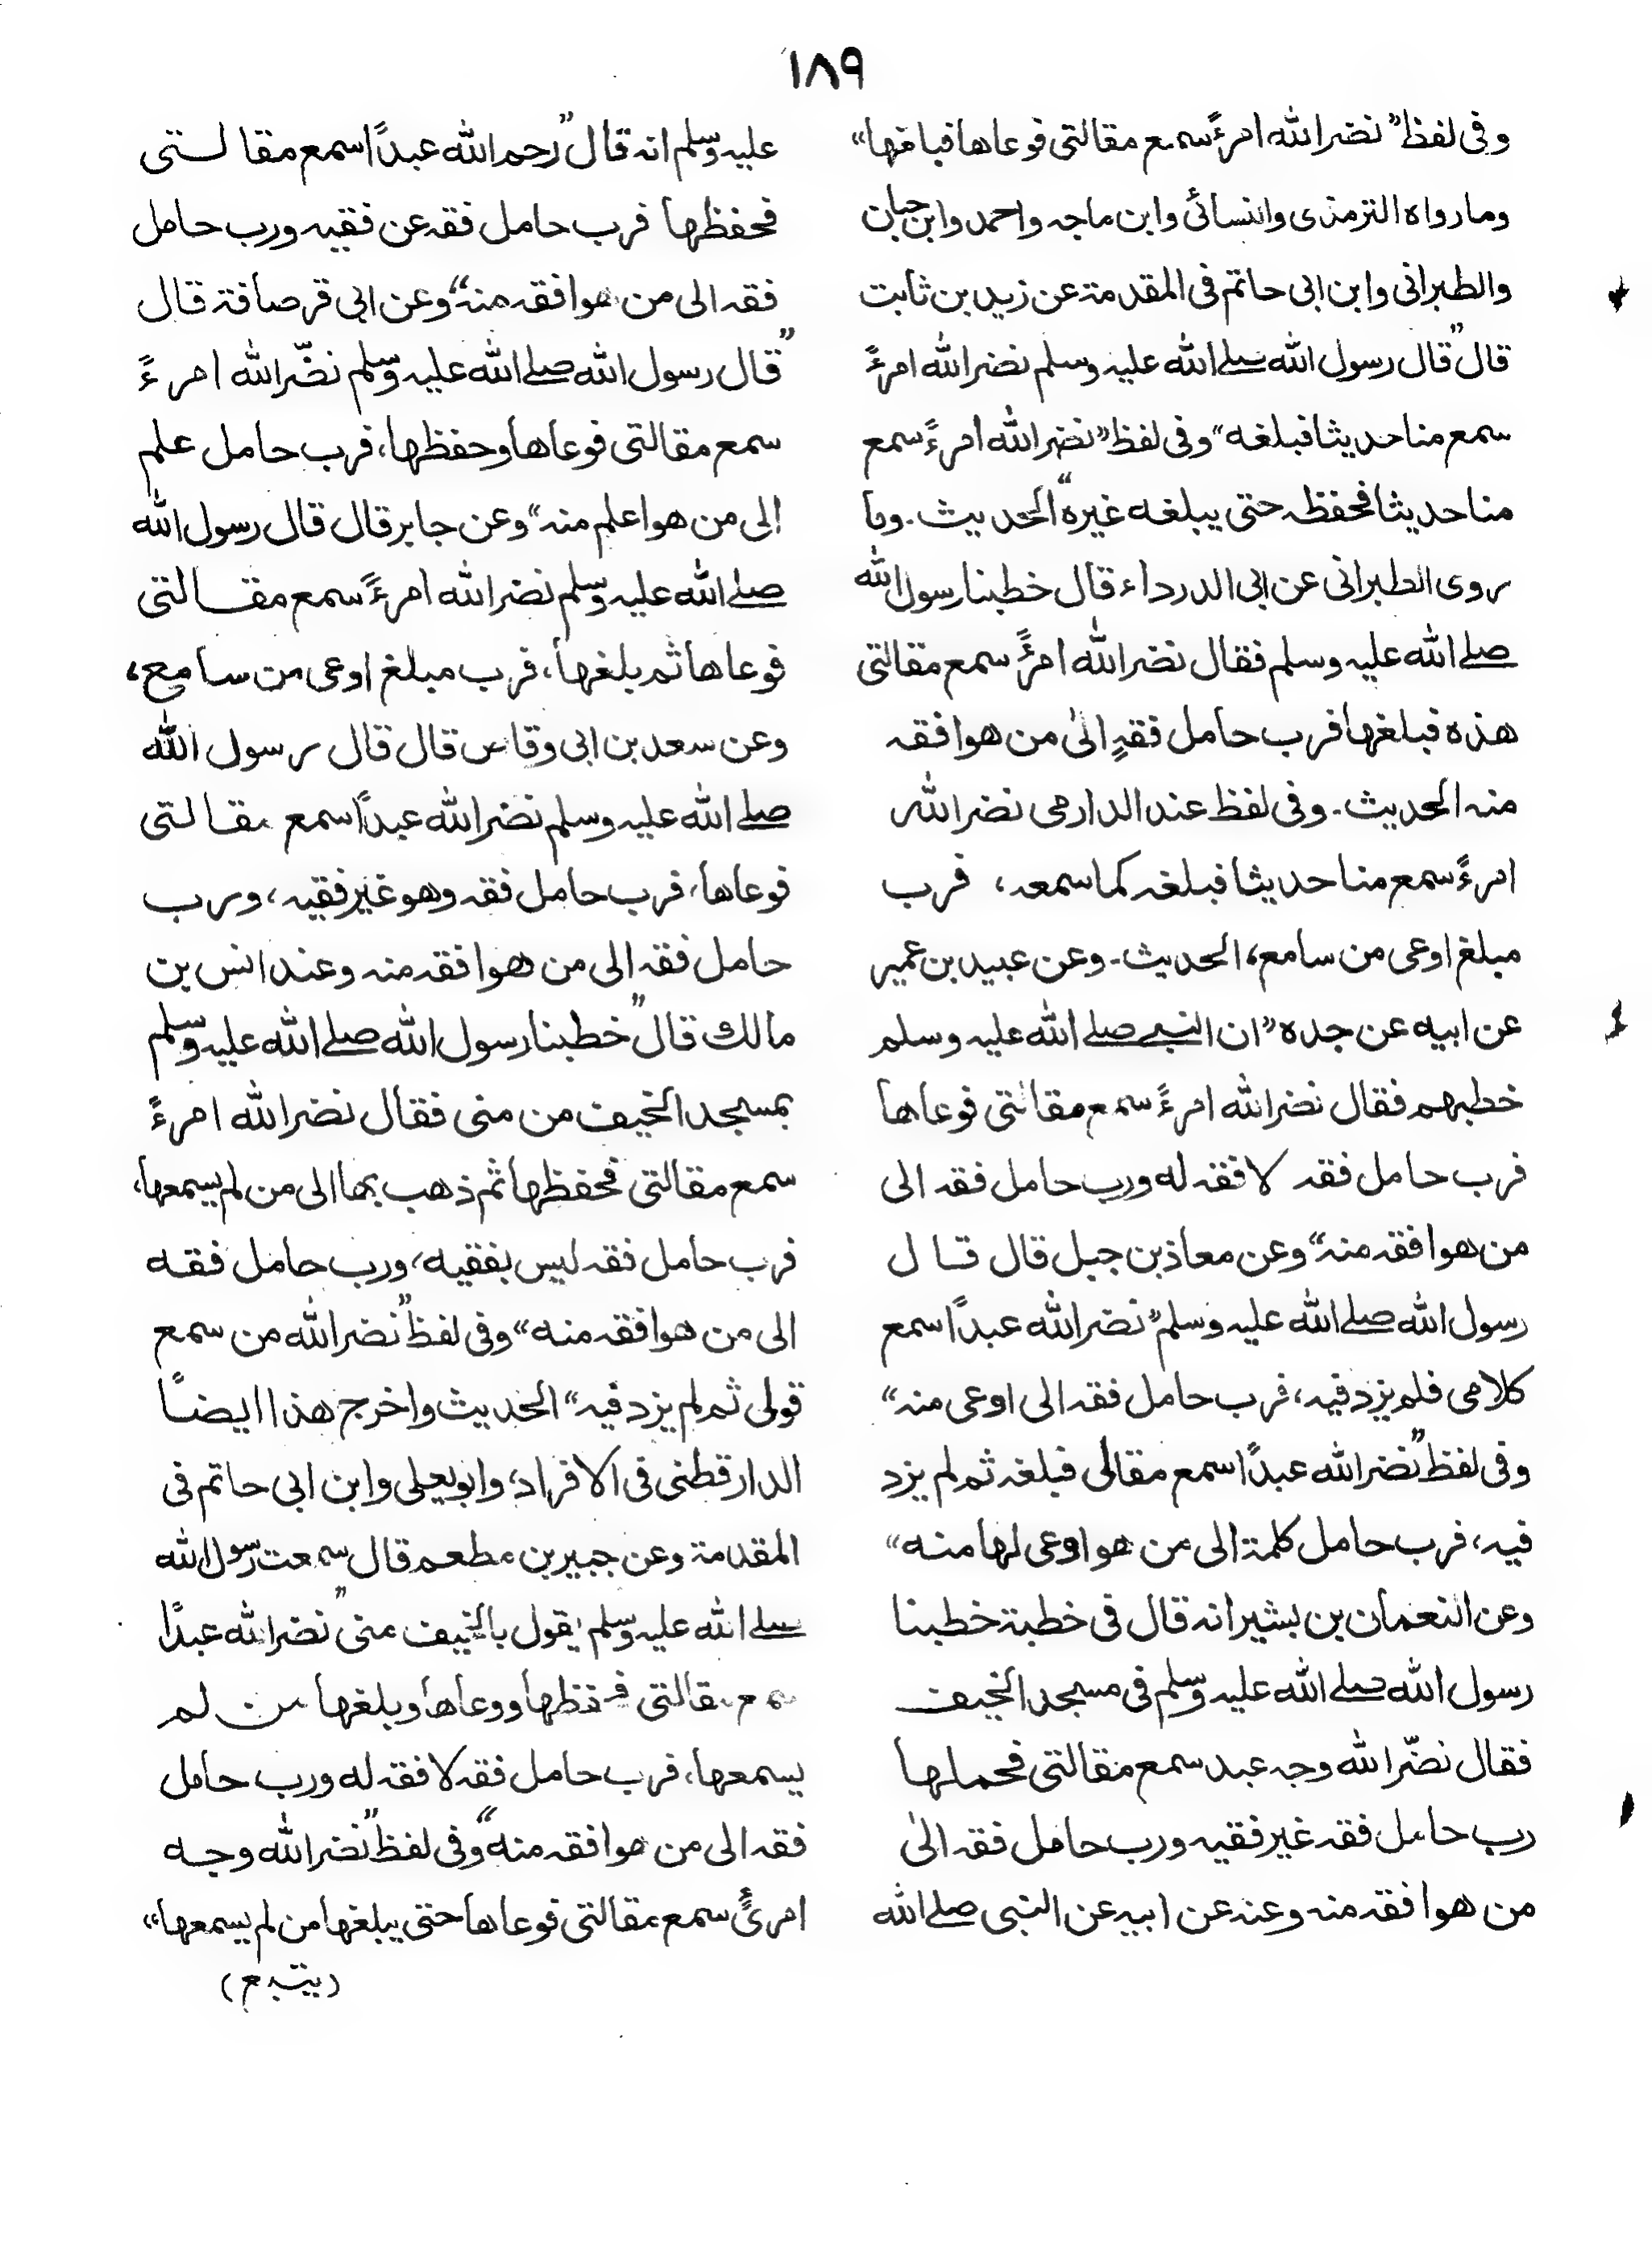 ١٨٩
وفى لفظ "نضر الله امرءً سمع مقالتى فوعاها فبلغها"
وما رواه الترمذى والنسائى وابن ماجه واحمد وابن حبان
والطبرانى وابن ابى حاتم فى المقدمة عن زيد بن ثابت
قال "قال رسول الله صلے الله عليه وسلم نضر الله امرءً
سمع منا حديثا فبلغه" وفى لفظ "نضر الله امرءً سمع
منا حديثا فحفظه حتى يبلغه غيره" الحديث. وما
روى الطبرانى عن ابى الدرداء قال خطبنا رسول الله
صلے الله عليه وسلم فقال نضر الله امرءً سمع مقالتى
هذه فبلغها فرب حامل فقهٍ الىٰ من هو افقه
منه الحديث. وفى لفظ عند الدارمى نضر الله
امرءً سمع منا حديثا فبلغه كما سمعه، فرب
مبلغ اوعى من سامع، الحديث. وعن عبيد بن عمير
عن ابيه عن جده "ان النبے صلے الله عليه وسلم
خطبهم فقال نضر الله امرءً سمع مقالتى فوعاها
فرب حامل فقه لا فقه له ورب حامل فقه الى
من هو افقه منه" وعن معاذ بن جبل قال قال
رسول الله صلے الله عليه وسلم "نضر الله عبداً سمع
كلامى فلم يزد فيه، فرب حامل فقه الى اوعى منه"
وفى لفظ "نضر الله عبداً سمع مقالى فبلغه ثم لم يزد
فيه، فرب حامل كلمة الى من هو اوعى لها منه"
وعن النعمان بن بشير انه قال فى خطبة خطبنا
رسول الله صلے الله عليه وسلم فى مسجد الخيف
فقال نضّر الله وجه عبد سمع مقالتى فحملها
رب حامل فقه غير فقيه ورب حامل فقه الىٰ
من هو افقه منه وعنه عن ابيه عن النبى صلے الله
عليه وسلم انه قال "رحم الله عبداً سمع مقالتى
فحفظها فرب حامل فقه عن فقيه ورب حامل
فقه الى من هو افقه منه" وعن ابى قرصافة قال
"قال رسول الله صلے الله عليه وسلم نضّر الله امرءً
سمع مقالتى فوعاها وحفظها، فرب حامل علم
الى من هو اعلم منه" وعن جابر قال قال رسول الله
صلے الله عليه وسلم نضر الله امرءً سمع مقالتى
فوعاها ثم بلغها، فرب مبلغ اوعى من سامع،
وعن سعد بن ابى وقاص قال قال رسول الله
صلے الله عليه وسلم نضر الله عبداً سمع مقالتى
فوعاها، فرب حامل فقه وهو غير فقيه، ورب
حامل فقه الى من هو افقه منه وعند انس بن
مالك قال "خطبنا رسول الله صلے الله عليه وسلم
بمسجد الخيف من منى فقال نضر الله امرءً
سمع مقالتى فحفظها ثم ذهب بها الى من لم يسمعها،
فرب حامل فقه ليس بفقيه، ورب حامل فقه
الى من هو افقه منه" وفى لفظ "نضر الله من سمع
قولى ثم لم يزد فيه" الحديث واخرج هذا ايضاً
الدارقطنى فى الافراد، وابو يعلى وابن ابى حاتم فى
المقدمة وعن جبير بن مطعم قال سمعت رسول الله
صلے الله عليه وسلم يقول بالخيف منى "نضر الله عبداً
سمع مقالتى فحفظها ووعاها وبلغها من لم
يسمعها، فرب حامل فقه لا فقه له ورب حامل
فقه الى من هو افقه منه" وفى لفظ "نضر الله وجه
امرئً سمع مقالتى فوعاها حتى يبلغها من لم يسمعها"
(يتبع)